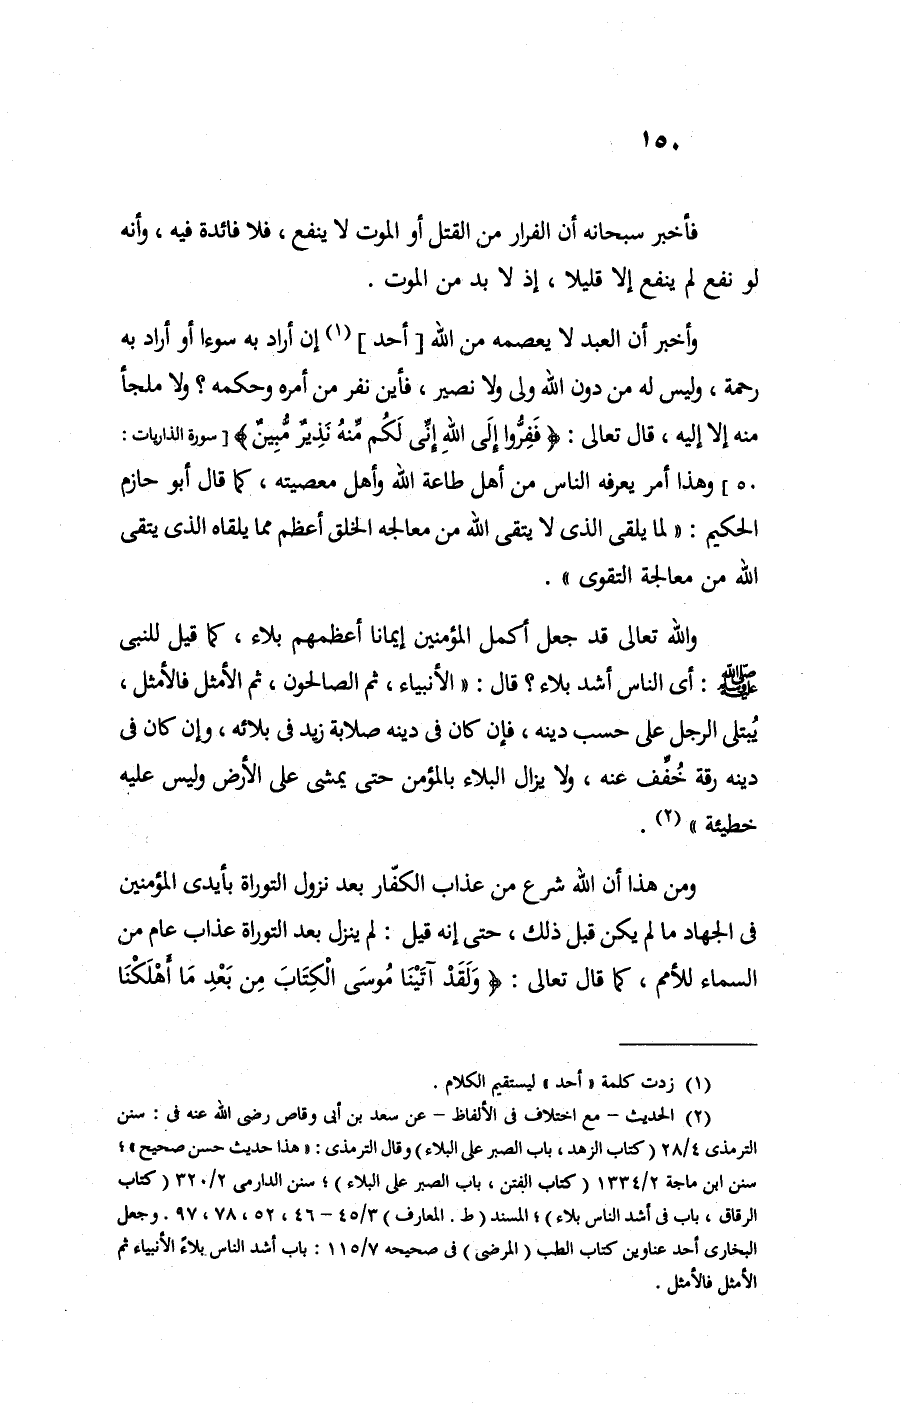 ١٥٠
فأخبر سبحانه أن الفرار من القتل أو الموت لا ينفع ، فلا فائدة فيه ، وأنه
لو نفع لم ينفع إلا قليلا ، إذ لا بد من الموت .
وأخبر أن العبد لا يعصمه من الله [ أحد ] (١) إن أراد به سوءا أو أراد به
رحمة ، وليس له من دون الله ولى ولا نصير ، فأين نفر من أمره وحكمه ؟ ولا ملجأ
منه إلا إليه ، قال تعالى : ﴿ فَفِرُّوا إِلَى اللهِ إِنِّى لَكُم مِّنهُ نَذِيرٌ مُّبِينٌ ﴾ [ سورة الذاريات :
٥٠ ] وهذا أمر يعرفه الناس من أهل طاعة الله وأهل معصيته ، كما قال أبو حازم
الحكيم : « لما يلقى الذى لا يتقى الله من معالجه الخلق أعظم مما يلقاه الذى يتقى
الله من معالجة التقوى » .
والله تعالى قد جعل أكمل المؤمنين إيمانا أعظمهم بلاء ، كما قيل للنبى
ﷺ : أى الناس أشد بلاء ؟ قال : « الأنبياء ، ثم الصالحون ، ثم الأمثل فالأمثل ،
يُبتلى الرجل على حسب دينه ، فإن كان فى دينه صلابة زيد فى بلائه ، وإن كان فى
دينه رقة خُفِّف عنه ، ولا يزال البلاء بالمؤمن حتى يمشى على الأرض وليس عليه
خطيئة » (٢) .
ومن هذا أن الله شرع من عذاب الكفّار بعد نزول التوراة بأيدى المؤمنين
فى الجهاد ما لم يكن قبل ذلك ، حتى إنه قيل : لم ينزل بعد التوراة عذاب عام من
السماء للأمم ، كما قال تعالى : ﴿ وَلَقَدْ آتَيْنَا مُوسَى الْكِتَابَ مِن بَعْدِ مَا أَهْلَكْنَا
(١) زدت كلمة « أحد » ليستقيم الكلام .
(٢) الحديث – مع اختلاف فى الألفاظ – عن سعد بن أبى وقاص رضى الله عنه فى : سنن
الترمذى ٢٨/٤ ( كتاب الزهد ، باب الصبر على البلاء ) وقال الترمذى : « هذا حديث حسن صحيح » ؛
سنن ابن ماجة ١٣٣٤/٢ ( كتاب الفتن ، باب الصبر على البلاء ) ؛ سنن الدارمى ٣٢٠/٢ ( كتاب
الرقاق ، باب فى أشد الناس بلاء ) ؛ المسند ( ط . المعارف ) ٤٥/٣ – ٤٦ ، ٥٢ ، ٧٨ ، ٩٧ . وجعل
البخارى أحد عناوين كتاب الطب ( المرضى ) فى صحيحه ١١٥/٧ : باب أشد الناس بلاءً الأنبياء ثم
الأمثل فالأمثل .